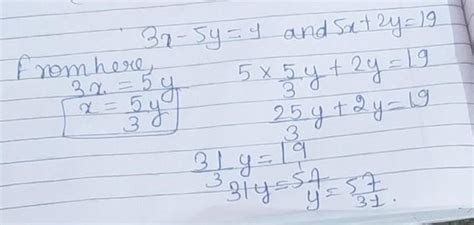 3x-5y=4 and 5x+2y=19
From here,
3x=5y
x=5y/3
5×5/3y+2y=19
25/3y+2y=19
31/3y=19
31y=57
y=57/31.